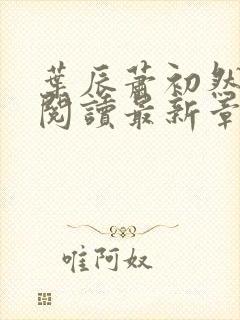 葉辰蕭初然
閱讀最新章
唯阿奴